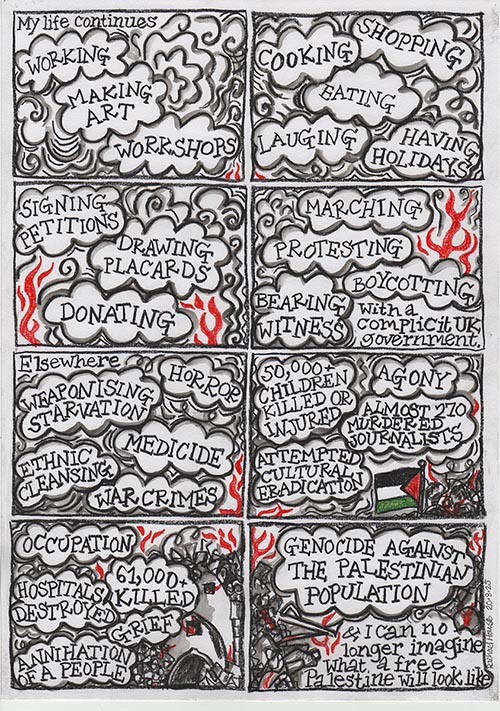 My life continues
WORKING
MAKING
ART
WORKSHOPS
COOKING
SHOPPING
EATING
LAUGING
HAVING
HOLIDAYS
SIGNING
PETITIONS
DRAWING
PLACARDS
DONATING
MARCHING
PROTESTING
BOYCOTTING
BEARING
WITNESS
with a
complicit UK
government.
Elsewhere
HORROR
WEAPONISING
STARVATION
MEDICIDE
ETHNIC
CLEANSING
WAR CRIMES
50,000+
CHILDREN
KILLED OR
INJURED
AGONY
ALMOST 270
MURDERED
JOURNALISTS
ATTEMPTED
CULTURAL
ERADICATION
OCCUPATION
61,000+
KILLED
HOSPITALS
DESTROYED
GRIEF
ANNIHATION
OF A PEOPLE
GENOCIDE AGAINST
THE PALESTINIAN
POPULATION
& I can no
longer imagine
what a free
Palestine will look like
20-8-25